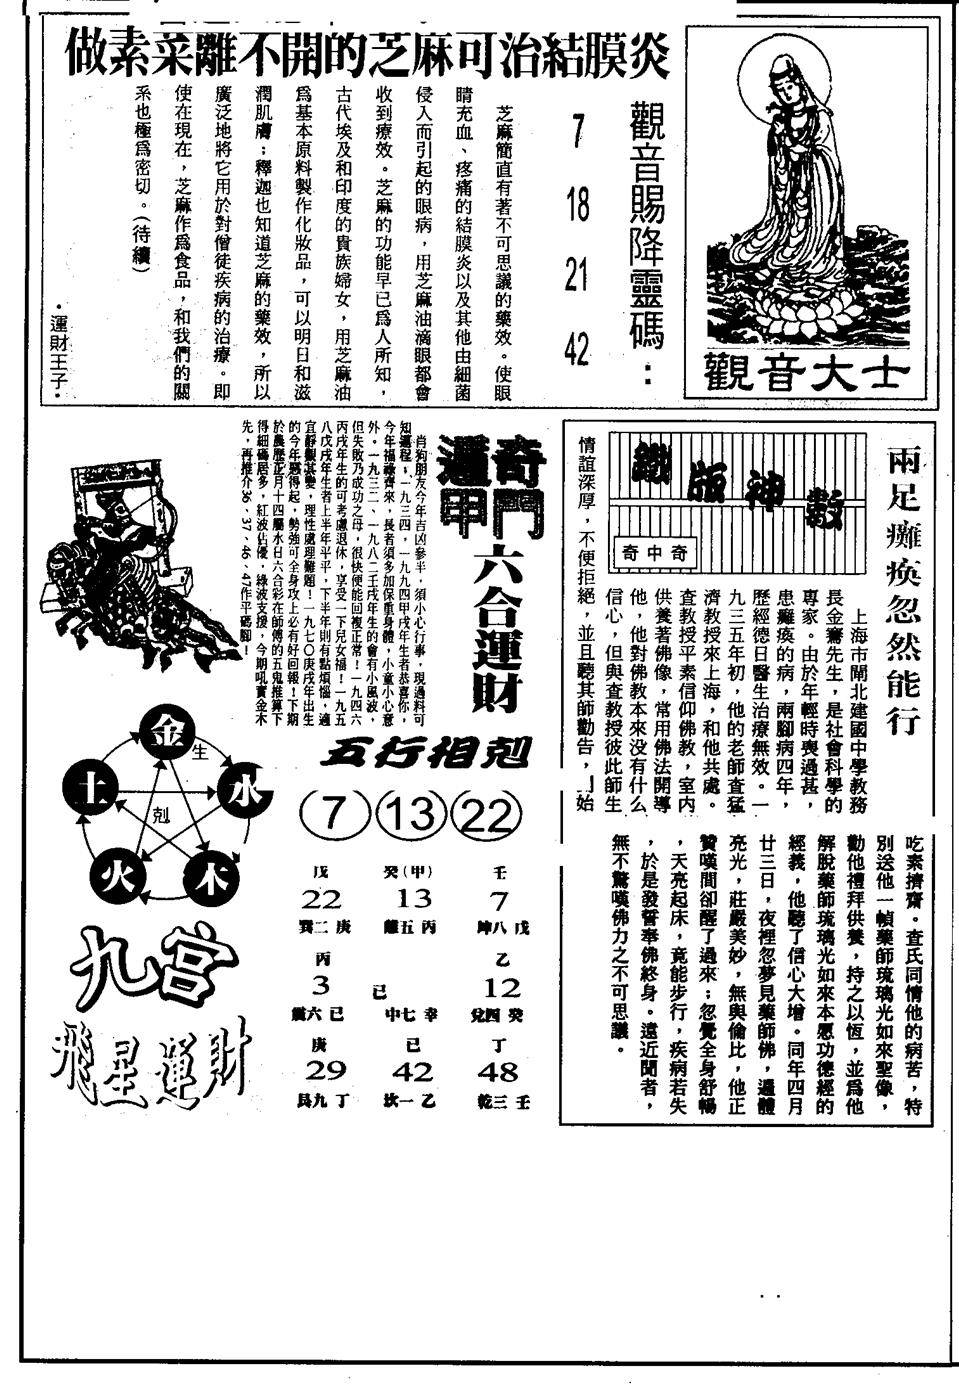 做素菜離不開的芝麻可治結膜炎
觀音大士
觀音賜降靈碼：
7
18
21
42
芝麻簡直有著不可思議的藥效。使眼
睛充血、疼痛的結膜炎以及其他由細菌
侵入而引起的眼病，用芝麻油滴眼都會
收到療效。芝麻的功能早已為人所知，
古代埃及和印度的貴族婦女，用芝麻油
為基本原料製作化妝品，可以明目和滋
潤肌膚；釋迦也知道芝麻的藥效，所以
廣泛地將它用於對僧徒疾病的治療。即
使在現在，芝麻作為食品，和我們的關
系也極為密切。（待續）
·運財王子·
兩足癱瘓忽然能行
鐵版神數
奇中奇
上海市閘北建國中學教務
長金騫先生，是社會科學的
專家。由於年輕時喪過甚，
患癱瘓的病，兩腳病四年，
歷經德日醫生治療無效。一
九三五年初，他的老師查猛
濟教授來上海，和他共處。
查教授平素信仰佛教，室内
供養著佛像，常用佛法開導
他，他對佛教本來没有什么
信心，但與查教授彼此師生
情誼深厚，不便拒絕，並且聽其師勸告，開始
吃素擠齋。查氏同情他的病苦，特
別送他一幀藥師琉璃光如來聖像，
勸他禮拜供養，持之以恆，並為他
解脫藥師琉璃光如來本愿功德經的
經義，他聽了信心大增。同年四月
廿三日，夜裡忽夢見藥師佛，遍體
亮光，莊嚴美妙，無與倫比，他正
贊嘆間卻醒了過來；忽覺全身舒暢
，天亮起床，竟能步行，疾病若失
，於是發誓奉佛終身。遠近聞者，
無不驚嘆佛力之不可思議。
奇門
遁甲
六合運財
肖狗朋友今年吉凶參半，須小心行事，現過料可
知運程；一九三四，一九九四甲戌年生者恭喜你，
今年福祿齊來，長者須多加保重身體，小童小心意
外。一九三二、一九八二壬戌年生的會有小風波，
但失敗乃成功之母，很快便能回複正常！一九四六
丙戌年生的可考慮退休，享受一下兒女福！一九五
八戊戌年生者上半年平平，下半年則有點煩惱，適
宜靜觀其變，理性處理難題！一九七〇庚戌年出生
的今年惡得起，勢強可全身攻上必有好回報！下期
於農歷正月十四屬水日六合彩在師傅的五鬼推算下
得細碼居多，紅波佔優，綠波支援，今期吼實金木
先，再推介36、37、46、47作平碼腳！
五行相剋
7 13 22
金
生
水
木
火
土
剋
九宮
飛星運財
戊 癸（甲） 壬
22 13 7
巽二庚 離五丙 坤八戊
丙 乙
3 己 12
震六己 中七辛 兌四癸
庚 己 丁
29 42 48
艮九丁 坎一乙 乾三壬